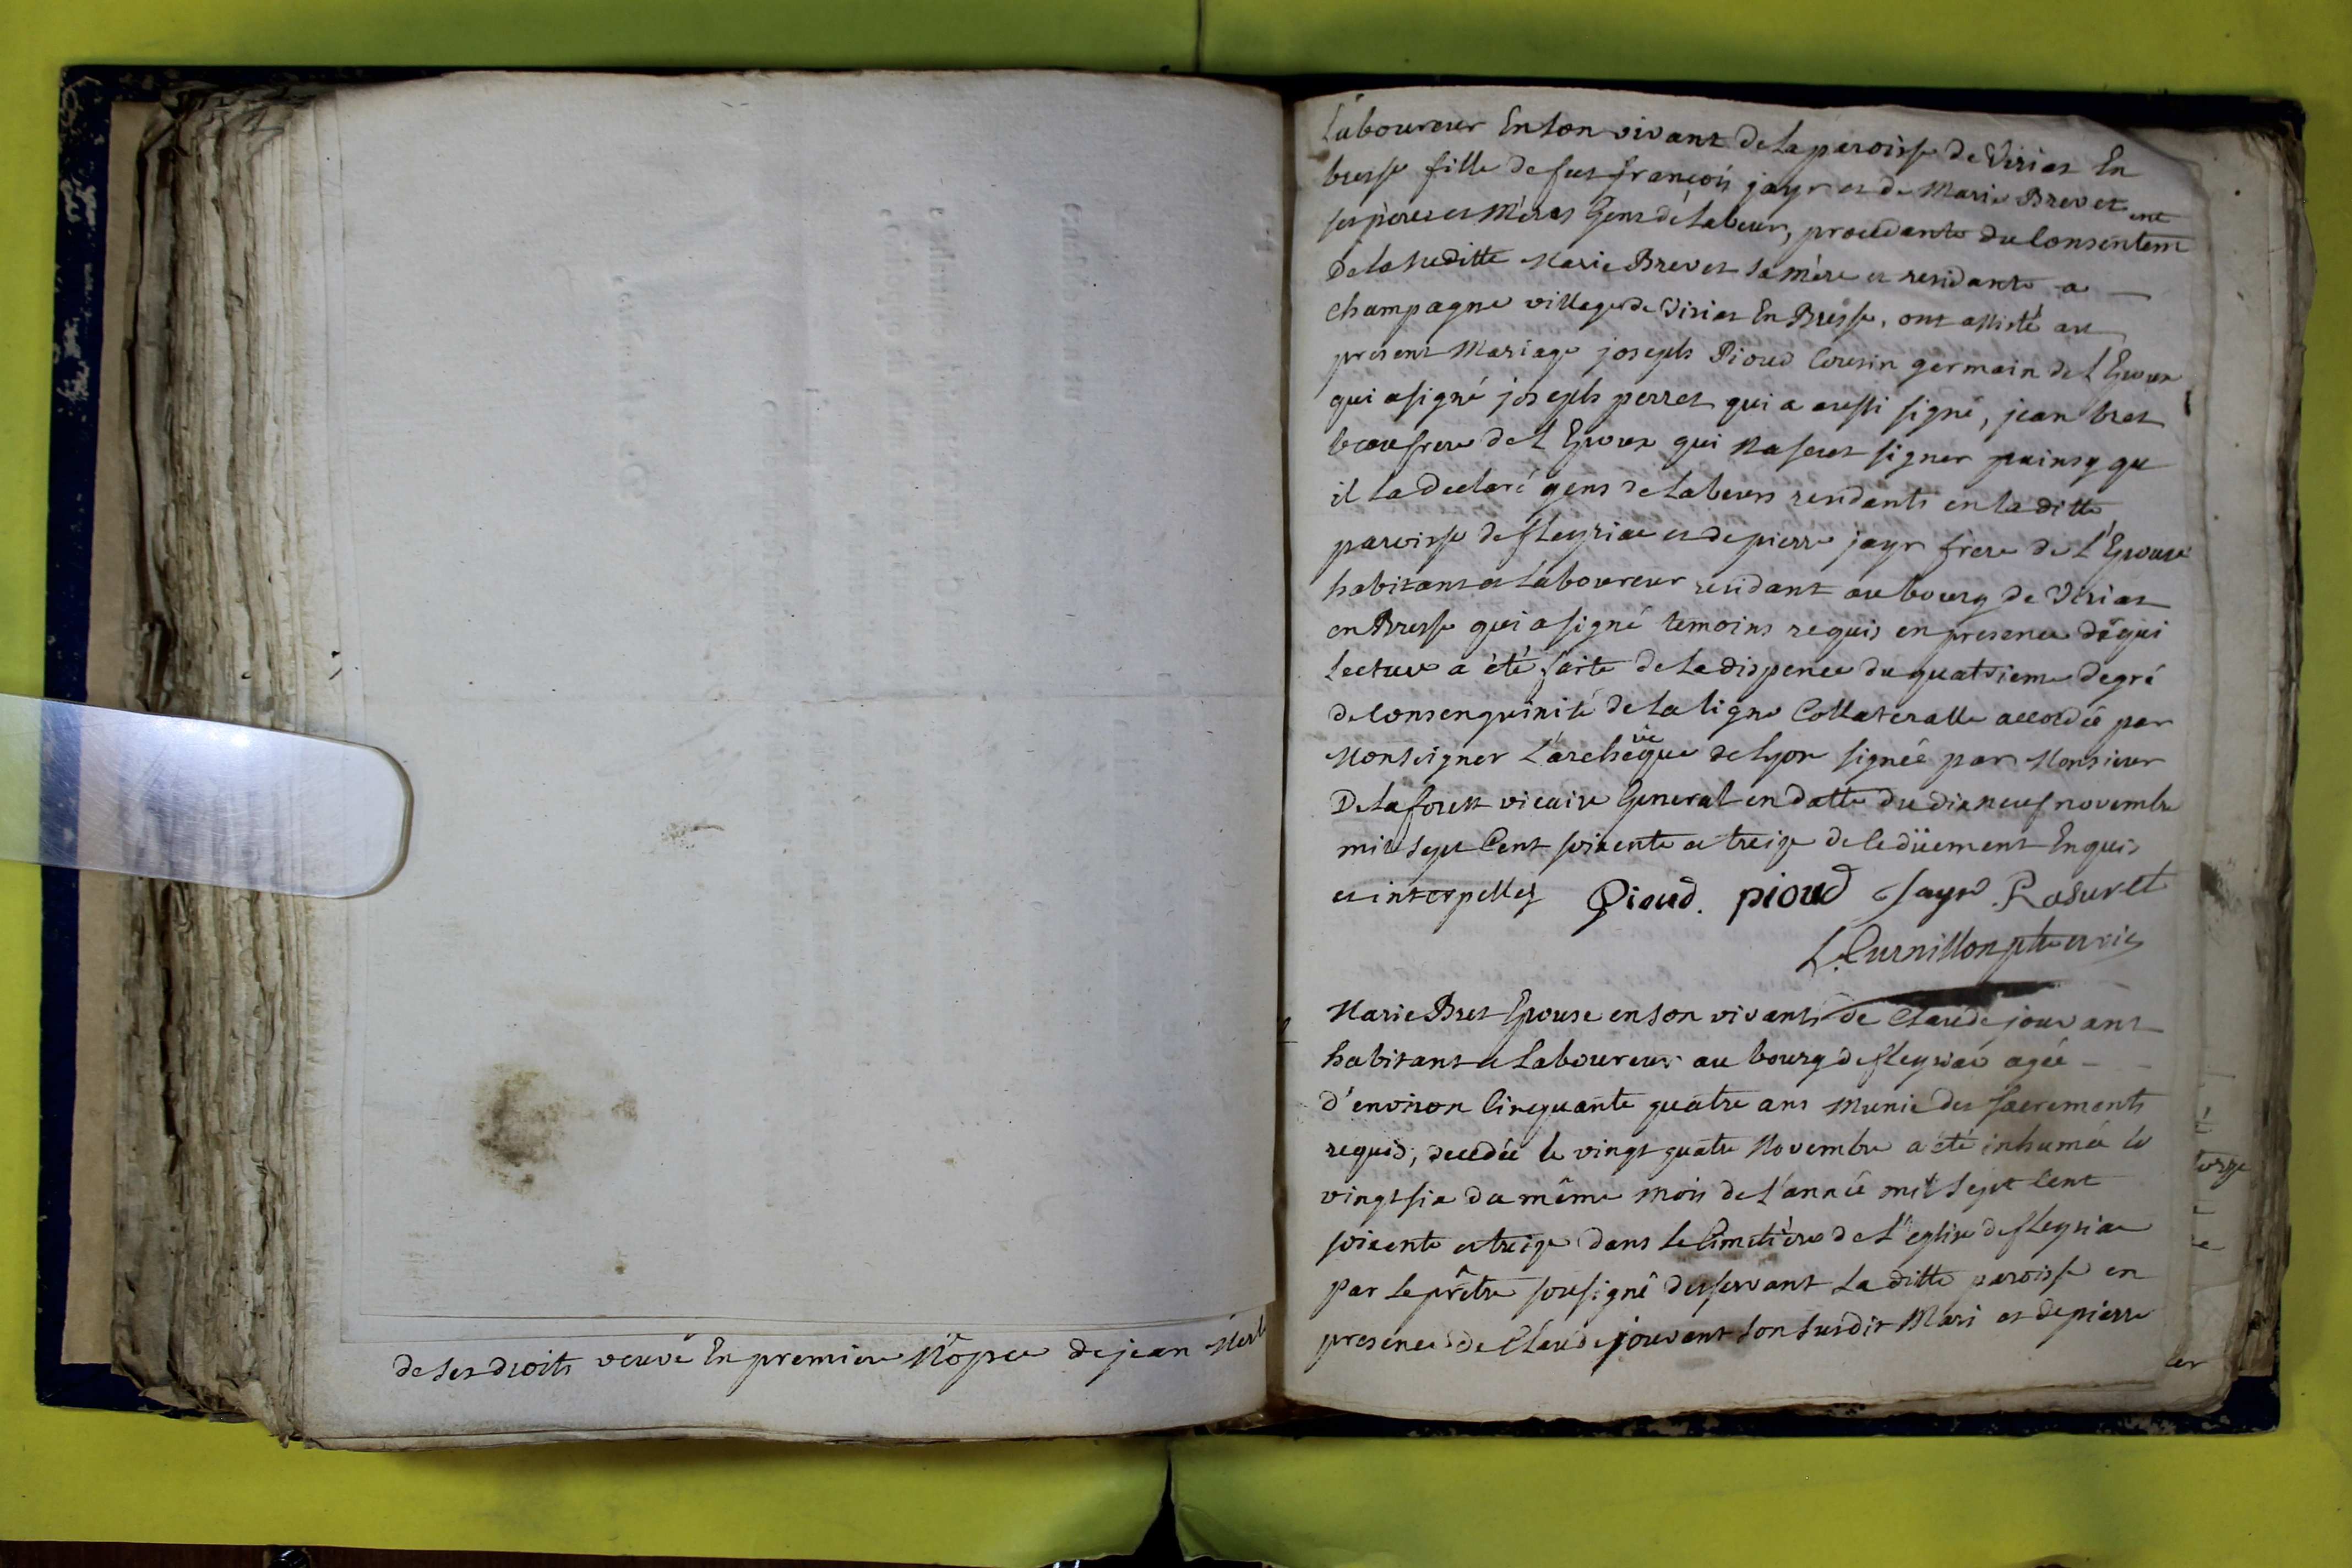 de ses droits veuve En premiere Nôpce de jean
Laboureur En son vivant de la paroisse de Viriat En
bresse fille de feu françois jayr et de Marie Brevet
ses peres et Mères Gens de Labeur, procedante du Consentem ent
De la sueditte Marie Brevet sa mère et residante a
Champagne village de Viriat En Bresse, ont assisté au
present Mariage joseph Pioud Cousin germain de L'Epoux
qui a signé joseph perret qui a aussi signé, jean bret
beaufrere de L'Epoux qui Na sceut signer qu
il la declaré gens de Labeurs residants en la ditte
paroisse de fleyriac et de pierre jayr frere de L'Epouse
habitant et Laboureur residant au bourg de Viriat
en Bresse qui a signé temoins requis en presence de qui
lecture a été faite de la dispence du quatrieme degré
de Consenguinité de la ligne Collateralle accordée par
Monseigner L'archevêque de Lyon signée par Monsieur
De la forest vicaire General en datte du dixneuf novembre
mil sept Cent soixente et treize de ce düement Enquis
et interpellez Pioud. pioud Jayr
L. Curnillon ptre
Marie Bret Epouse en son vivant de Claude jouvant
habitant et Laboureur au bourg de fleyriac agée
d'environ Cinquante quatre ans Munie des sacrements
requis, decedée le vingt quatre Novembre a été inhumée le
vingt six du même mois de l'année mil sept Cent
soixente et treize dans le Cimetière de L'eglise de fleyriac
par le prêtre sousigné desservant La ditte paroisse en
presence de Claude jouvent son susdit Mari et de pierre